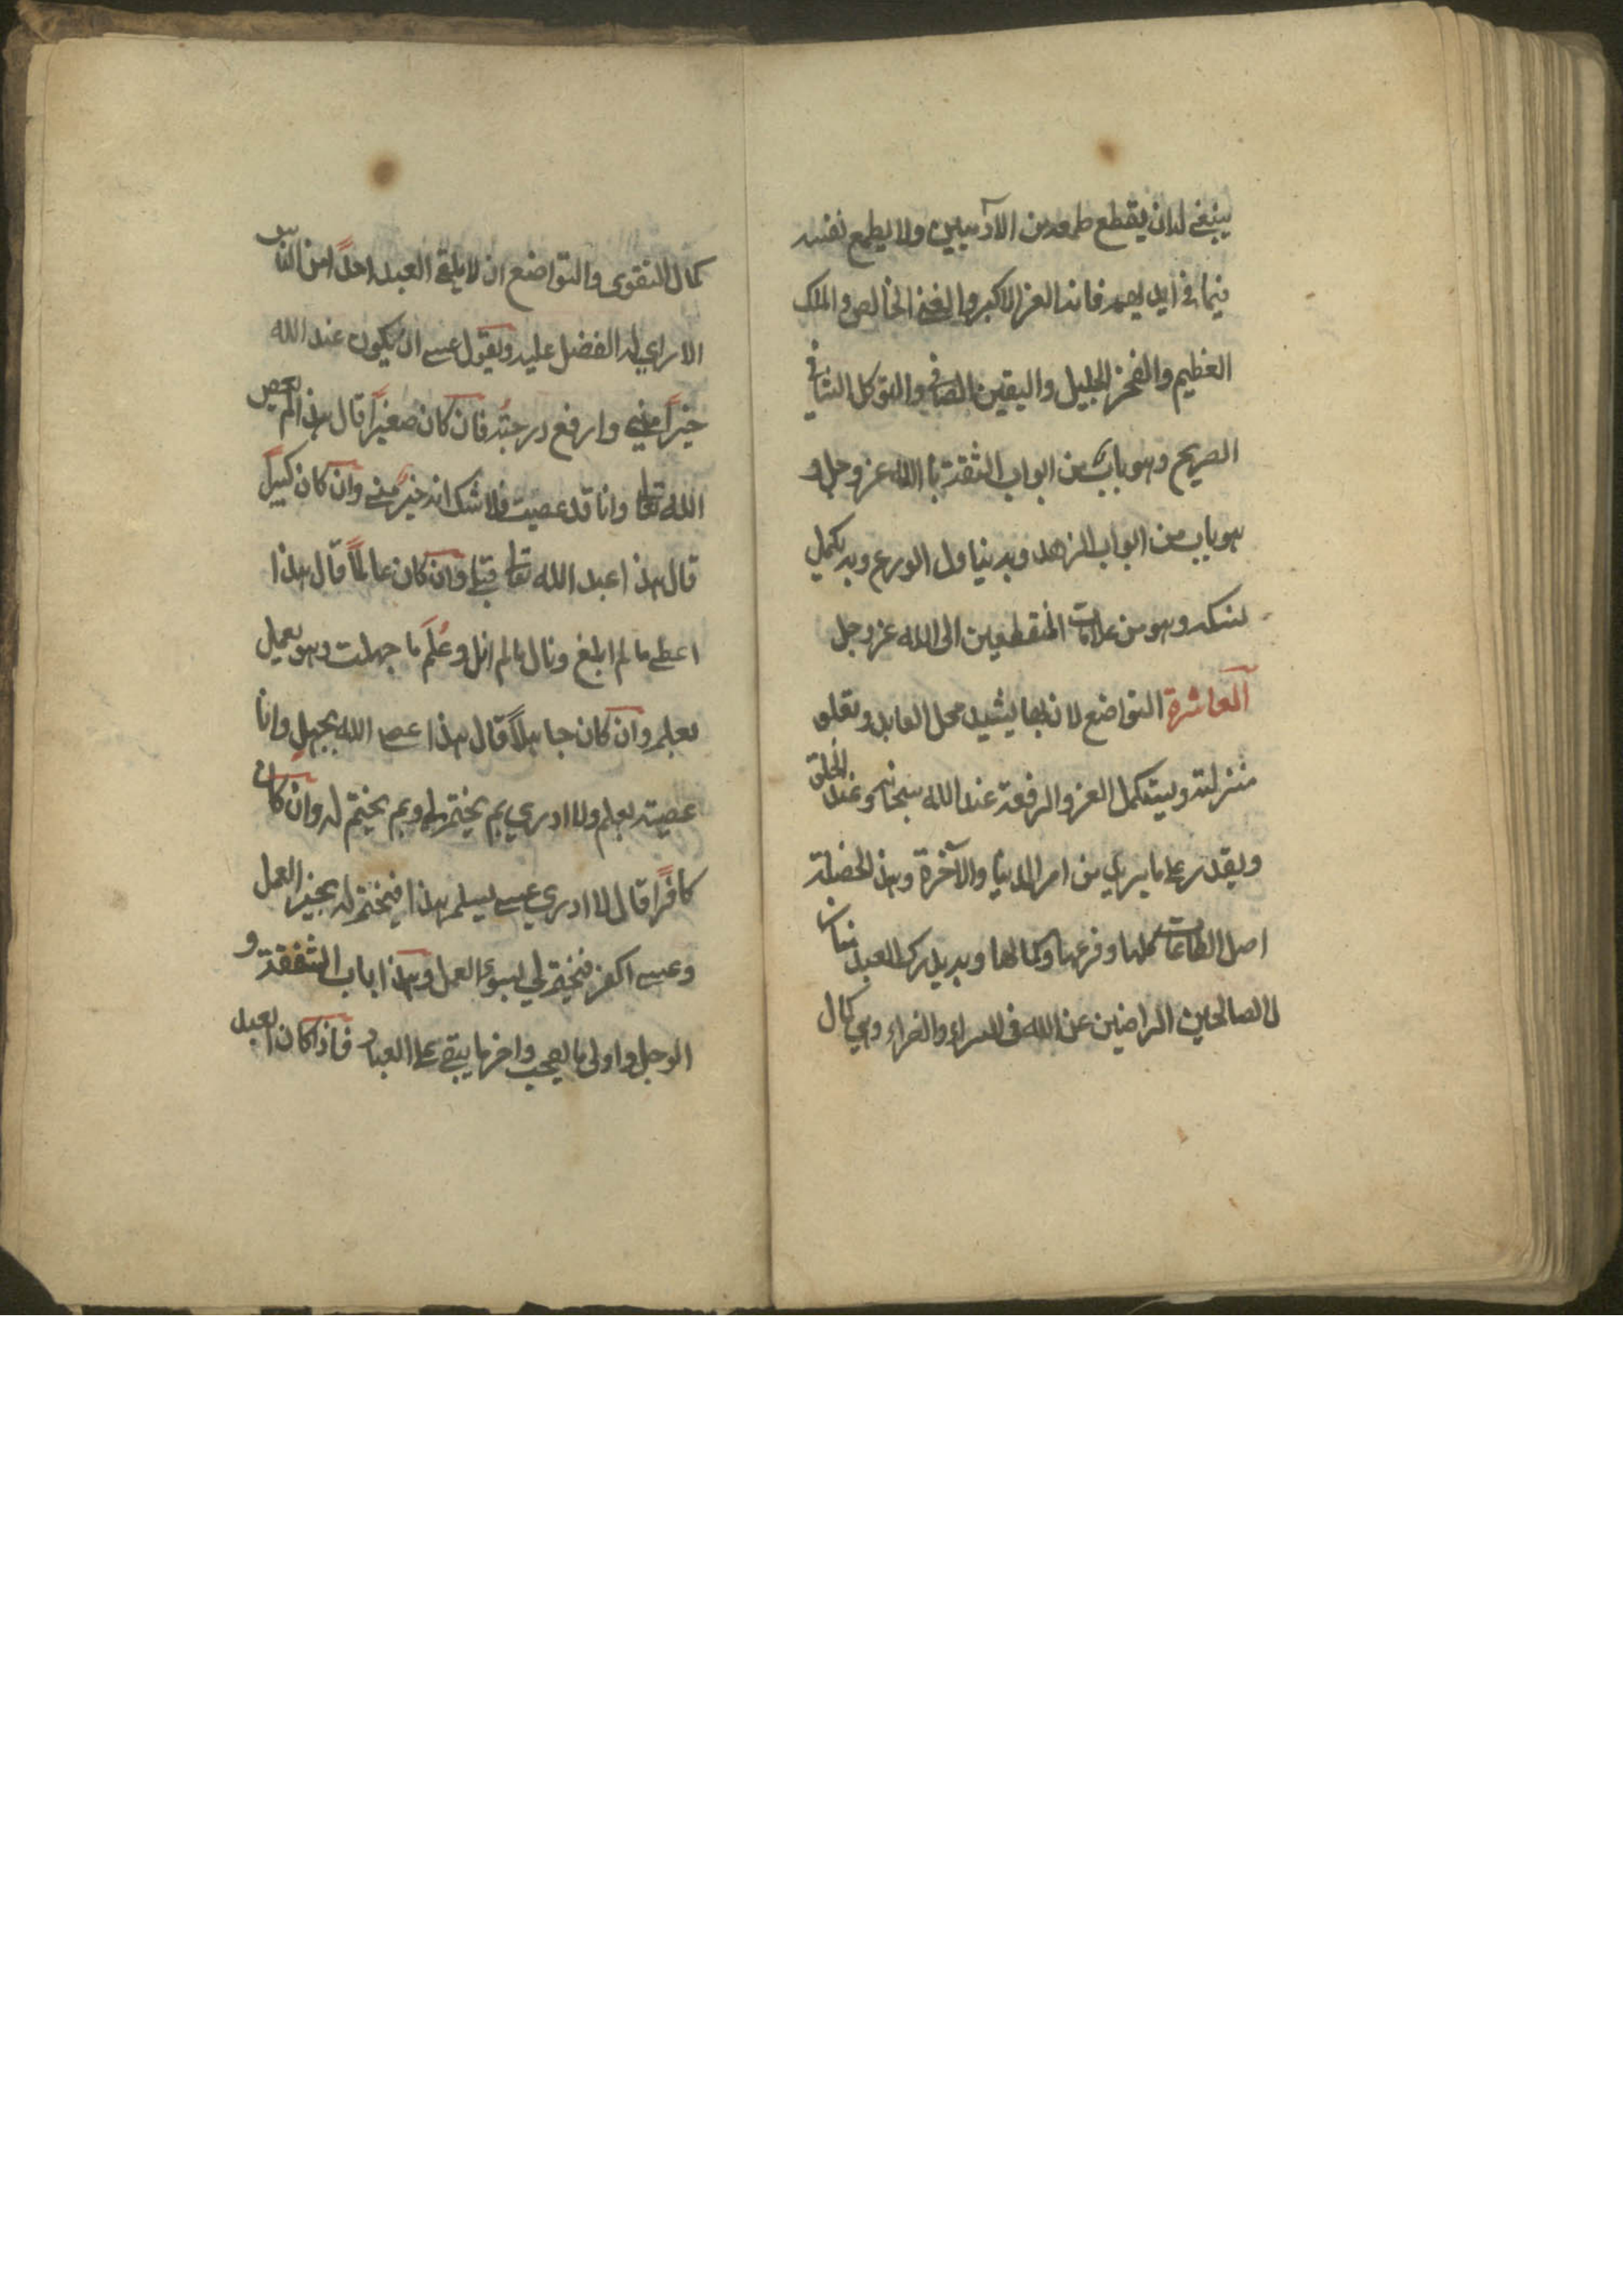 ينبغي له ان يقطع طمعه من الآدميين ولا يطمع نفسه
فيما في ايديهم فانه العز الاكبر والغنى الخالص والملك
العظيم والفخر الجليل واليقين الصافي والتوكل الشافي
الصريح وهو باب من ابواب الثقة باالله عز وجل و
هو باب من ابواب الزهد وبه ينال الورع وبه يكمل
نسكه وهو من علامات المنقطعين الى الله عز وجل
العاشرة التواضع لان بها يشيد محل العابد وتعلو
منزلته ويستكمل العز والرفعة عند الله سبحانه وعند الخلق
ويقدر على ما يريد من امر الدنيا والآخرة وهذه الخصلة
اصل الطاعات كلها وفرعها وكمالها وبه يدرك العبد منازل
الصالحين الراضين عن الله في السراء والضراء وهي كمال
كمال التقوى والتواضع ان لا يلقى العبد احدًا من الناس
الا راي له الفضل عليه ويقول عسى ان يكون عند الله
خيرًا مني وارفع درجتة فان كان صغيرًا قال هذا لم يعص
الله تعالى وانا قد عصيت فلا شك انه خير مني وان كان كبيرًا
قال هذا عبد الله تعالى قبلي وان كان عالمًا قال هذا
اعطي ما لم ابلغ ونال ما لم انل وعُلّم ما جهلت وهو يعمل
بعلم وان كان جاهلًا قال هذا عصى الله بجهلٍ وانا
عصيته بعلم ولا ادري بم يختم لي وبم يختم له وان كان
كافرًا قال لا ادري عسى يسلم هذا فيختم له بخير العمل
وعسى اكفر فيختم لي بسوء العمل وهذا باب الشفقة و
الوجل واولى ما يصحب واخر ما يبقى على العباد فاذا كان العبد